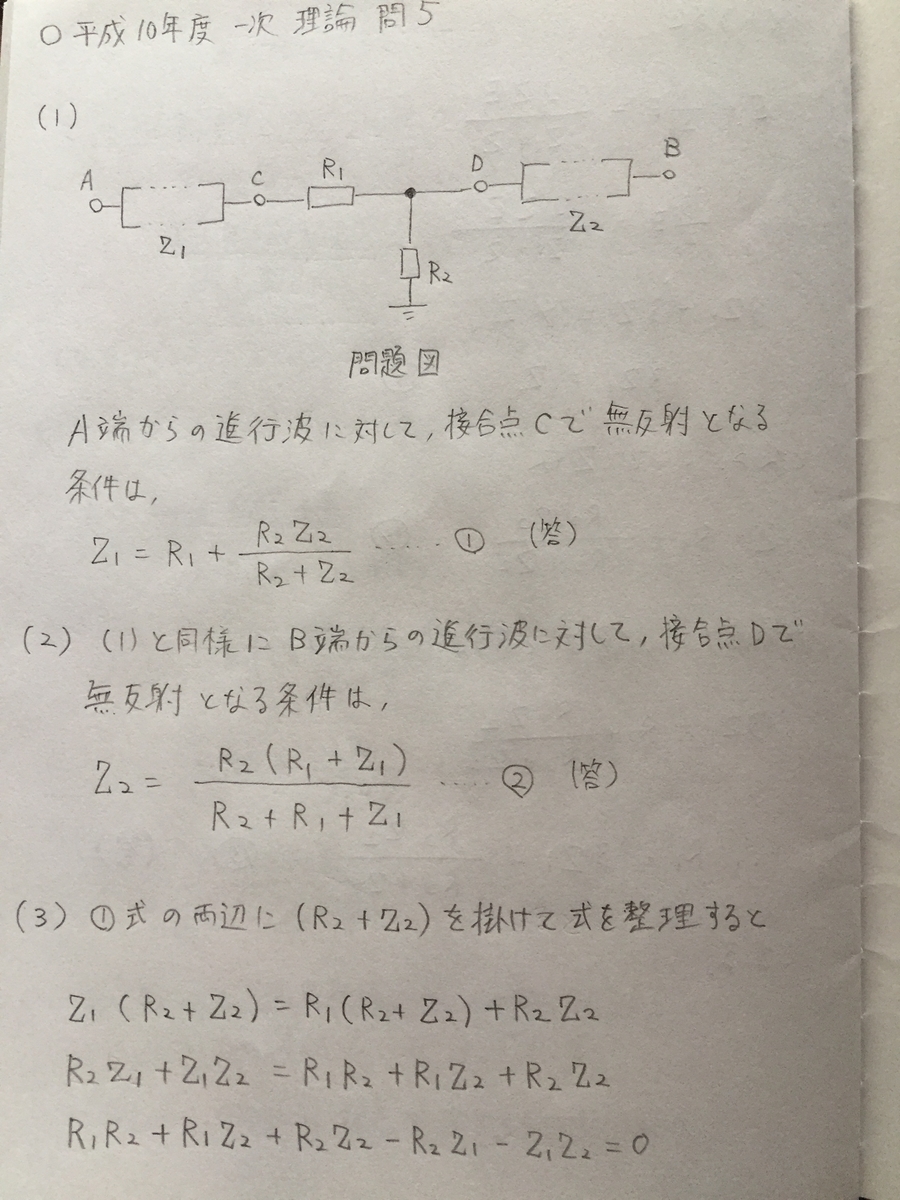 ○ 平成10年度 一次 理論 問5
(1)
A C R₁ D B
Z₁ R₂ Z₂
問題図
A端からの進行波に対して,接合点Cで無反射となる
条件は,
Z₁ = R₁ + R₂Z₂ / (R₂+Z₂) …… ① (答)
(2) (1)と同様にB端からの進行波に対して,接合点Dで
無反射となる条件は,
Z₂ = R₂(R₁+Z₁) / (R₂+R₁+Z₁) …… ② (答)
(3) ①式の両辺に(R₂+Z₂)を掛けて式を整理すると
Z₁(R₂+Z₂) = R₁(R₂+Z₂)+R₂Z₂
R₂Z₁+Z₁Z₂ = R₁R₂+R₁Z₂+R₂Z₂
R₁R₂+R₁Z₂+R₂Z₂-R₂Z₁-Z₁Z₂=0